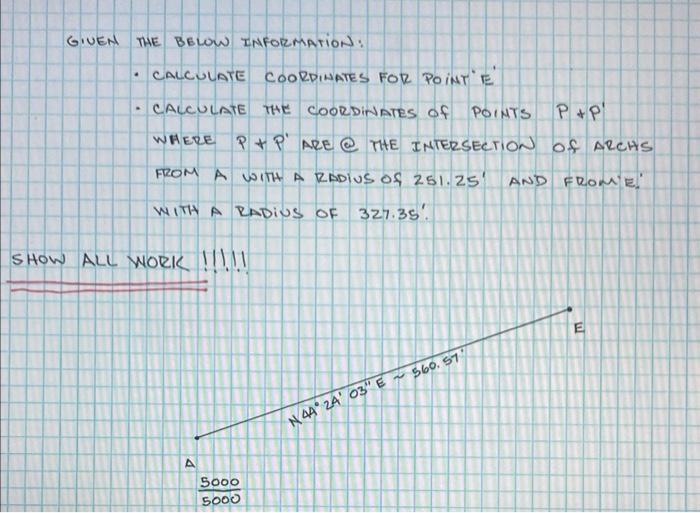 GIVEN THE BELOW INFORMATION:
• CALCULATE COORDINATES FOR POINT 'E'
• CALCULATE THE COORDINATES OF POINTS P + P'
WHERE P + P' ARE @ THE INTERSECTION OF ARCHS
FROM A WITH A RADIUS OF 251.25' AND FROM 'E'
WITH A RADIUS OF 327.35'.
SHOW ALL WORK !!!!!
E
N 44° 24' 03" E ~ 560.57'
A
5000
5000